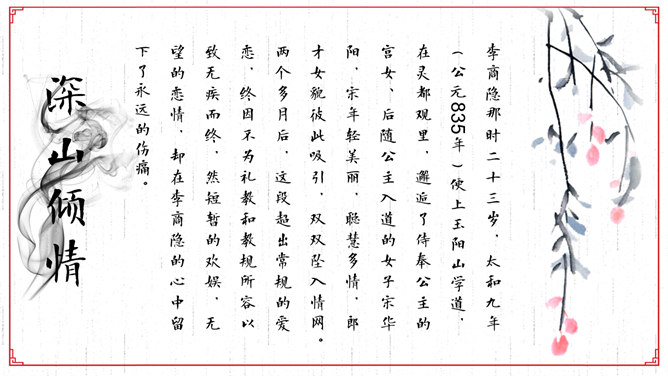 李商隐那时二十三岁，太和九年
（公元835年）便上玉阳山学道，
在灵都观里，邂逅了侍奉公主的
宫女、后随公主入道的女子宋华
阳，宋年轻美丽，聪慧多情，郎
才女貌彼此吸引，双双坠入情网。
两个多月后，这段超出常规的爱
恋，终因不为礼教和教规所容以
致无疾而终，然短暂的欢娱，无
望的恋情，却在李商隐的心中留
下了永远的伤痛。
深山倾情